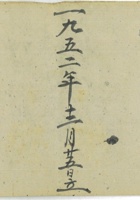 一九五二年十二月廿五日